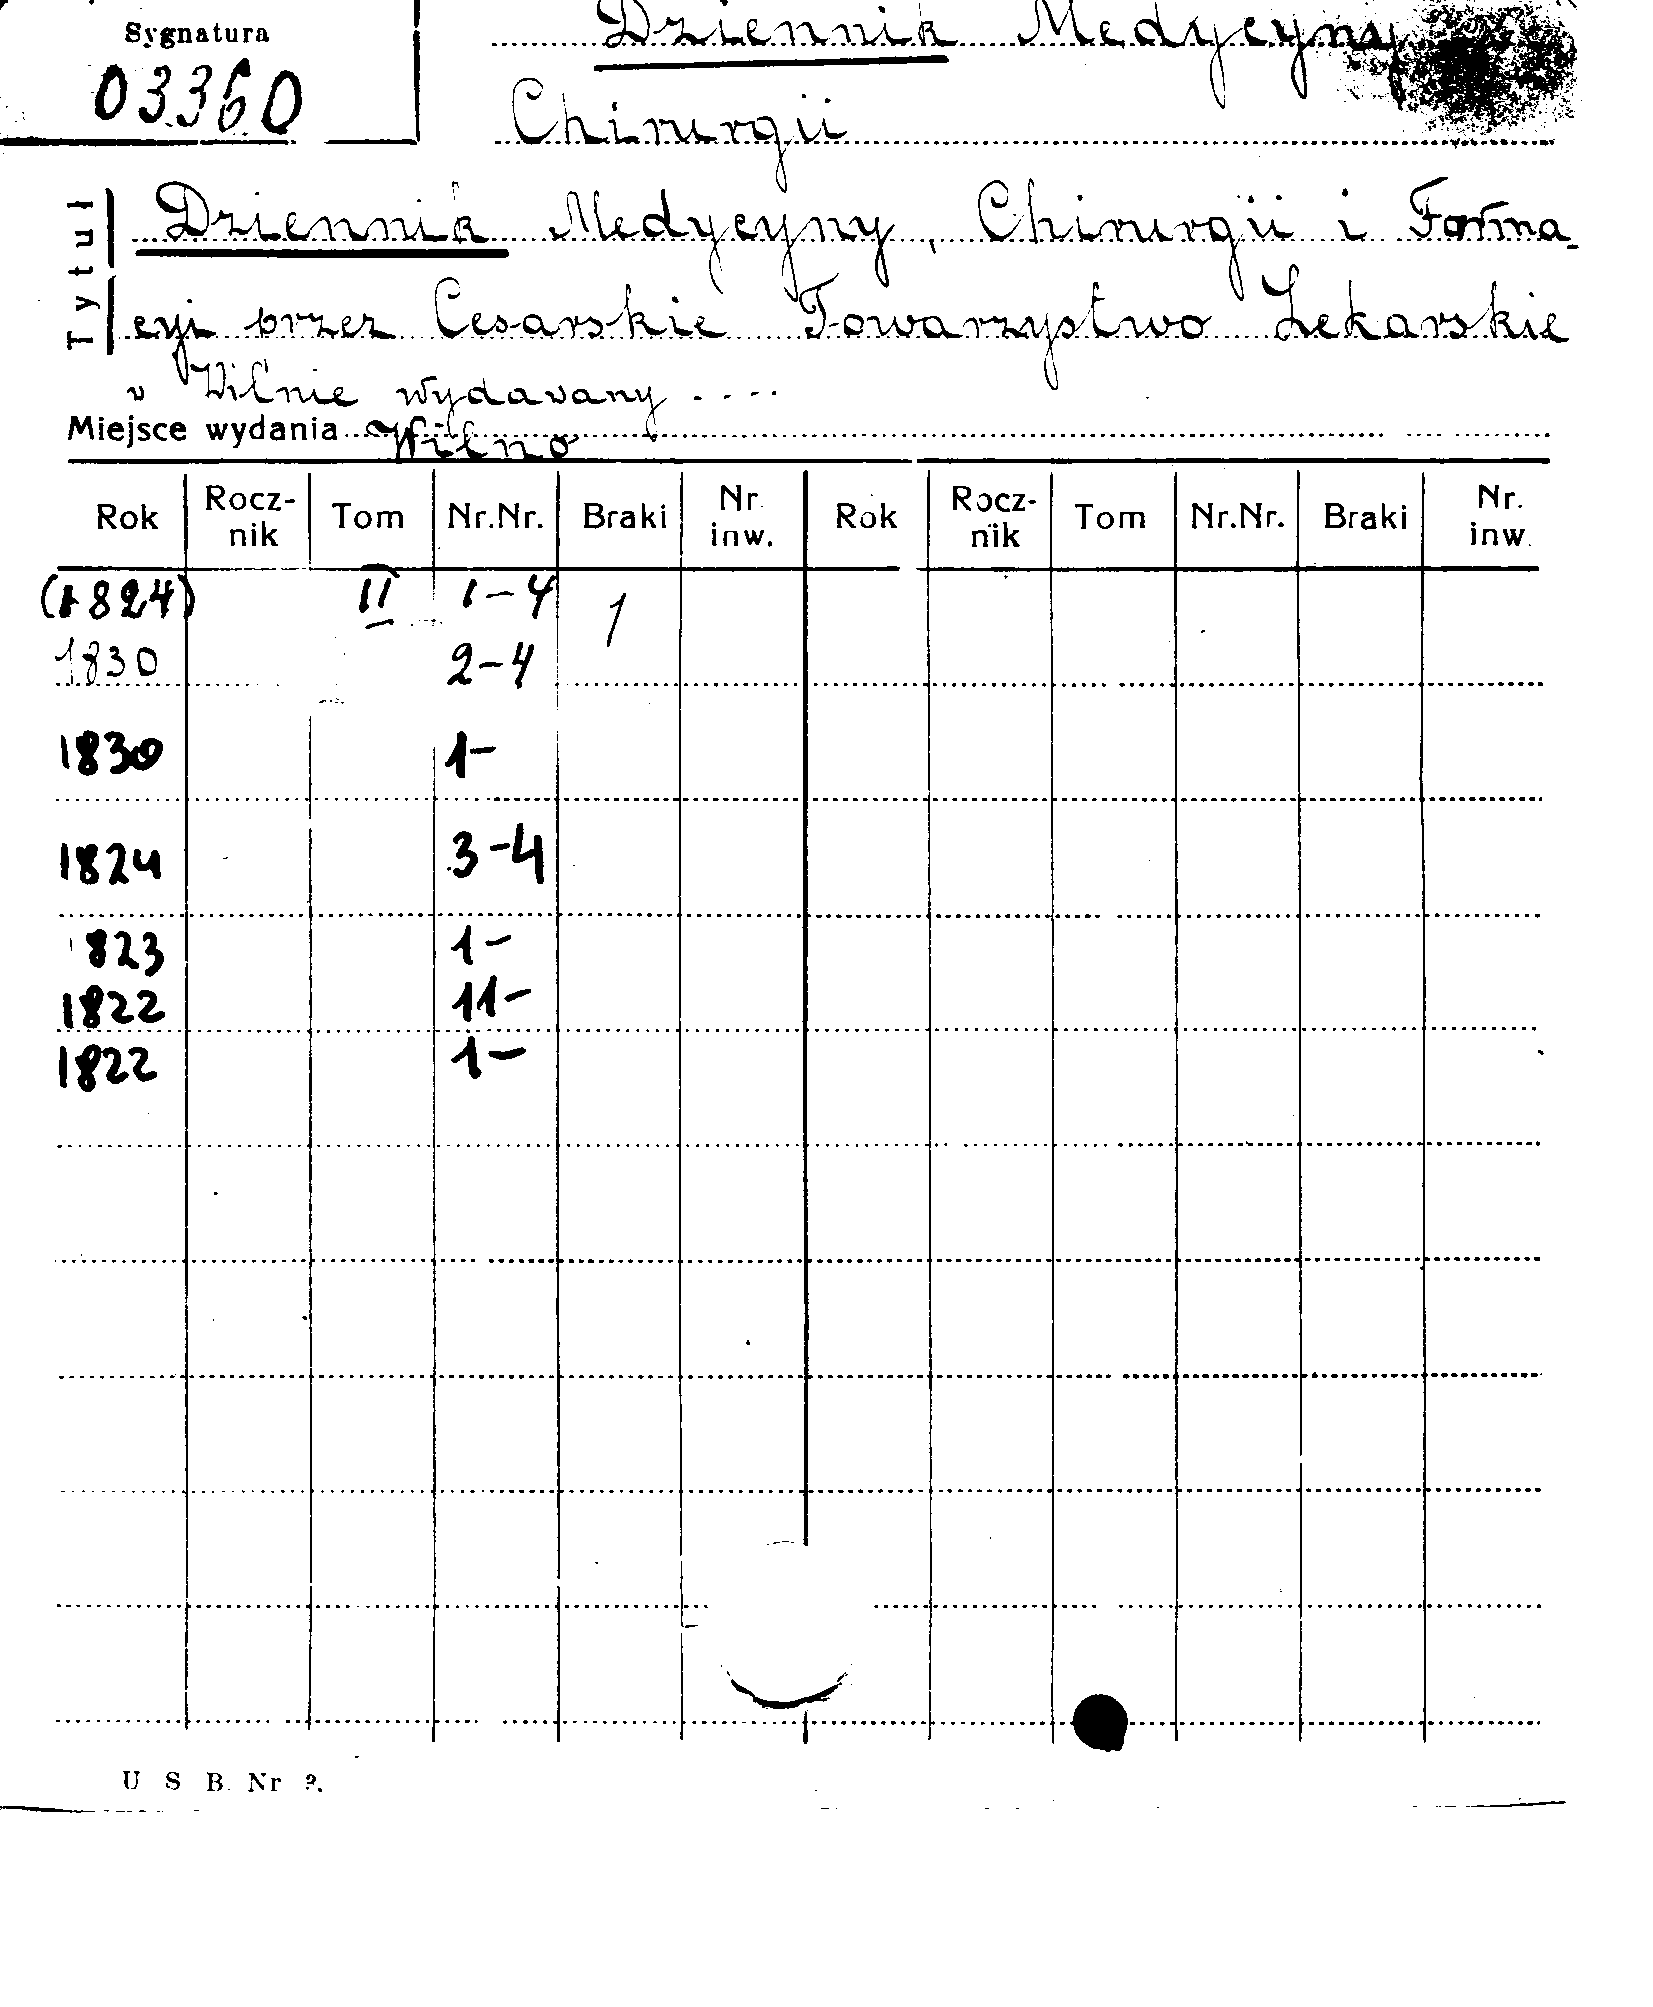 Sygnatura
03360
Dziennik Medycyny
Chirurgii
Tytuł
Dziennik Medycyny, Chirurgii i Farma-
cyi przez Cesarskie Towarzystwo Lekarskie
w Wilnie wydavany ....
Miejsce wydania Wilno
Rok Rocz-nik Tom Nr.Nr. Braki Nr. inw. Rok Rocz-nik Tom Nr.Nr. Braki Nr. inw.
(1824) II 1-4 1
1830 2-4
1830 1-
1824 3-4
1823 1-
1822 11-
1822 1-
U S B. Nr ?.